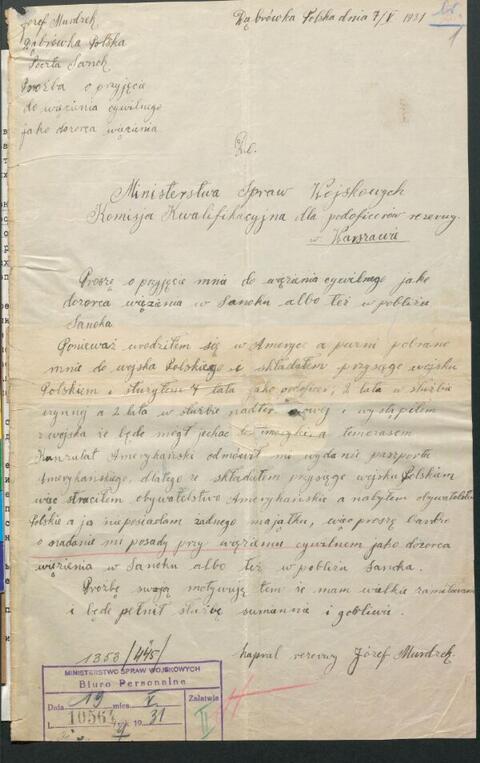 Józef Murdzek
Dąbrówka Polska
Poczta Sanok
Prośba o przyjęcie
do więzienia cywilnego
jako dozorca więzienia
Dąbrówka Polska dnia 7/V 1931
1
Do.
Ministerstwa Spraw Wojskowych
Komisja Kwalifikacyjna dla podoficerów rezerwy
w Warszawie
Proszę o przyjęcie mnie do więzienia cywilnego jako
dozorca więzienia w Sanoku albo też w pobliżu
Sanoka
Ponieważ urodziłem się w Ameryce a pobrano
mnie do wojska Polskiego i składałem przysięgę wojsku
Polskiem i służyłem 4 lata jako podoficer, 2 lata w służbie
czynnej a 2 lata w służbie i wystąpiłem
z wojska że będę mógł jechać do a temczasem
Konzulat Amerykański odmówił mi wydanie paszportu
Amerykańskiego, dlatego że składałem przysięgę wojsku Polskiem
więc straciłem obywatelstwo Amerykańskie a nabyłem obywatelstwo
Polskie a ja nieposiadam żadnego majątku, więc proszę bardzo
o nadanie mi posady przy więzieniu cywilnem jako dozorca
więzienia w Sanoku albo też w pobliżu Sanoka.
Prożbę swoją motywuję tem że mam wielkie zamiłowanie
i będę pełnił służbę sumannie i gobliwie.
kapral rezerwy Józef Murdzek
1353/445/
MINISTERSTWO SPRAW WOJSKOWYCH
Biuro Personalne
Dnia 19 mies. V
L. 10564 rok 1931
Załatwia
II